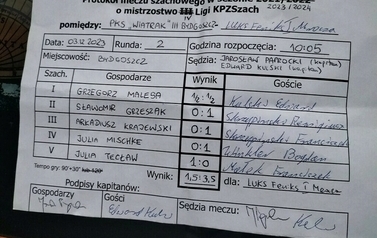 Protokół meczu szachowego w sezonie
o mistrzostwo III Ligi KPZSzach 2023/2024
IV
pomiędzy: PKS "WIATRAK" III BYDGOSZCZ LUKS Feniks I
Data: 03.12.2023 Runda: 2 Godzina rozpoczęcia: 10:05
Miejscowość: BYDGOSZCZ Sędzia: JAROSŁAW (kapitan)
EDWARD KULSKI (kapitan)
Szach. Gospodarze Wynik Goście
I GRZEGORZ MALESA ½:½ Edward
II SŁAWOMIR GRZESZAK 0:1
III ARKADIUSZ KRAJEWSKI 0:1 Franciszek
IV JULIA MISCHKE 0:1 Winkler Bogdan
V JULIA TECŁAW 1:0 Małek Franciszek
Tempo gry: 90'+30" lub 120' Wynik: 1,5:3,5 dla: LUKS FENIKS I
Podpisy kapitanów:
Gospodarzy Gości Sędzia meczu: